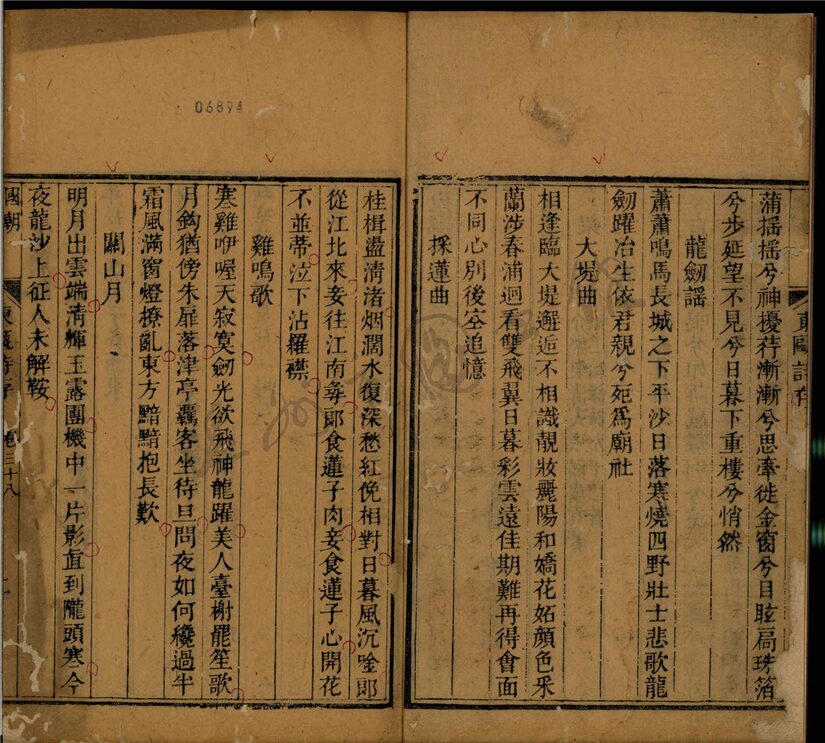 蒲摇摇兮神擾荇漸漸兮思牽徙金窗兮目眩扃珠箔
兮步延望不見兮日暮下重樓兮悄然
龍劒謠
蕭蕭鳴馬長城之下平沙日落寒燒四野壯士悲歌龍
劒躍冶生依君親兮死爲廟社
大堤曲
相逢臨大堤邂逅不相識靚妝麗陽和嬌花妬顔色采
蘭涉春浦迴看雙飛翼日暮彩雲遠佳期難再得會面
不同心別後空追憶
採蓮曲
東甌詩存
桂楫盪清渚烟濶水復深愁紅俛相對日暮風沉唫郎
從江北來妾往江南尋郎食蓮子肉妾食蓮子心開花
不並蒂泣下沾羅襟
雞鳴歌
寒雞咿喔天寂寞劒光欲飛神龍躍美人臺榭罷笙歌
月鈎猶傍朱扉落津亭羈客坐待旦問夜如何纔過半
霜風滿窗燈撩亂東方黯黯抱長歎
關山月
明月出雲端清輝玉露團機中一片影直到隴頭寒今
夜龍沙上征人未解鞍
國朝
東甌詩存 卷三十八
06894